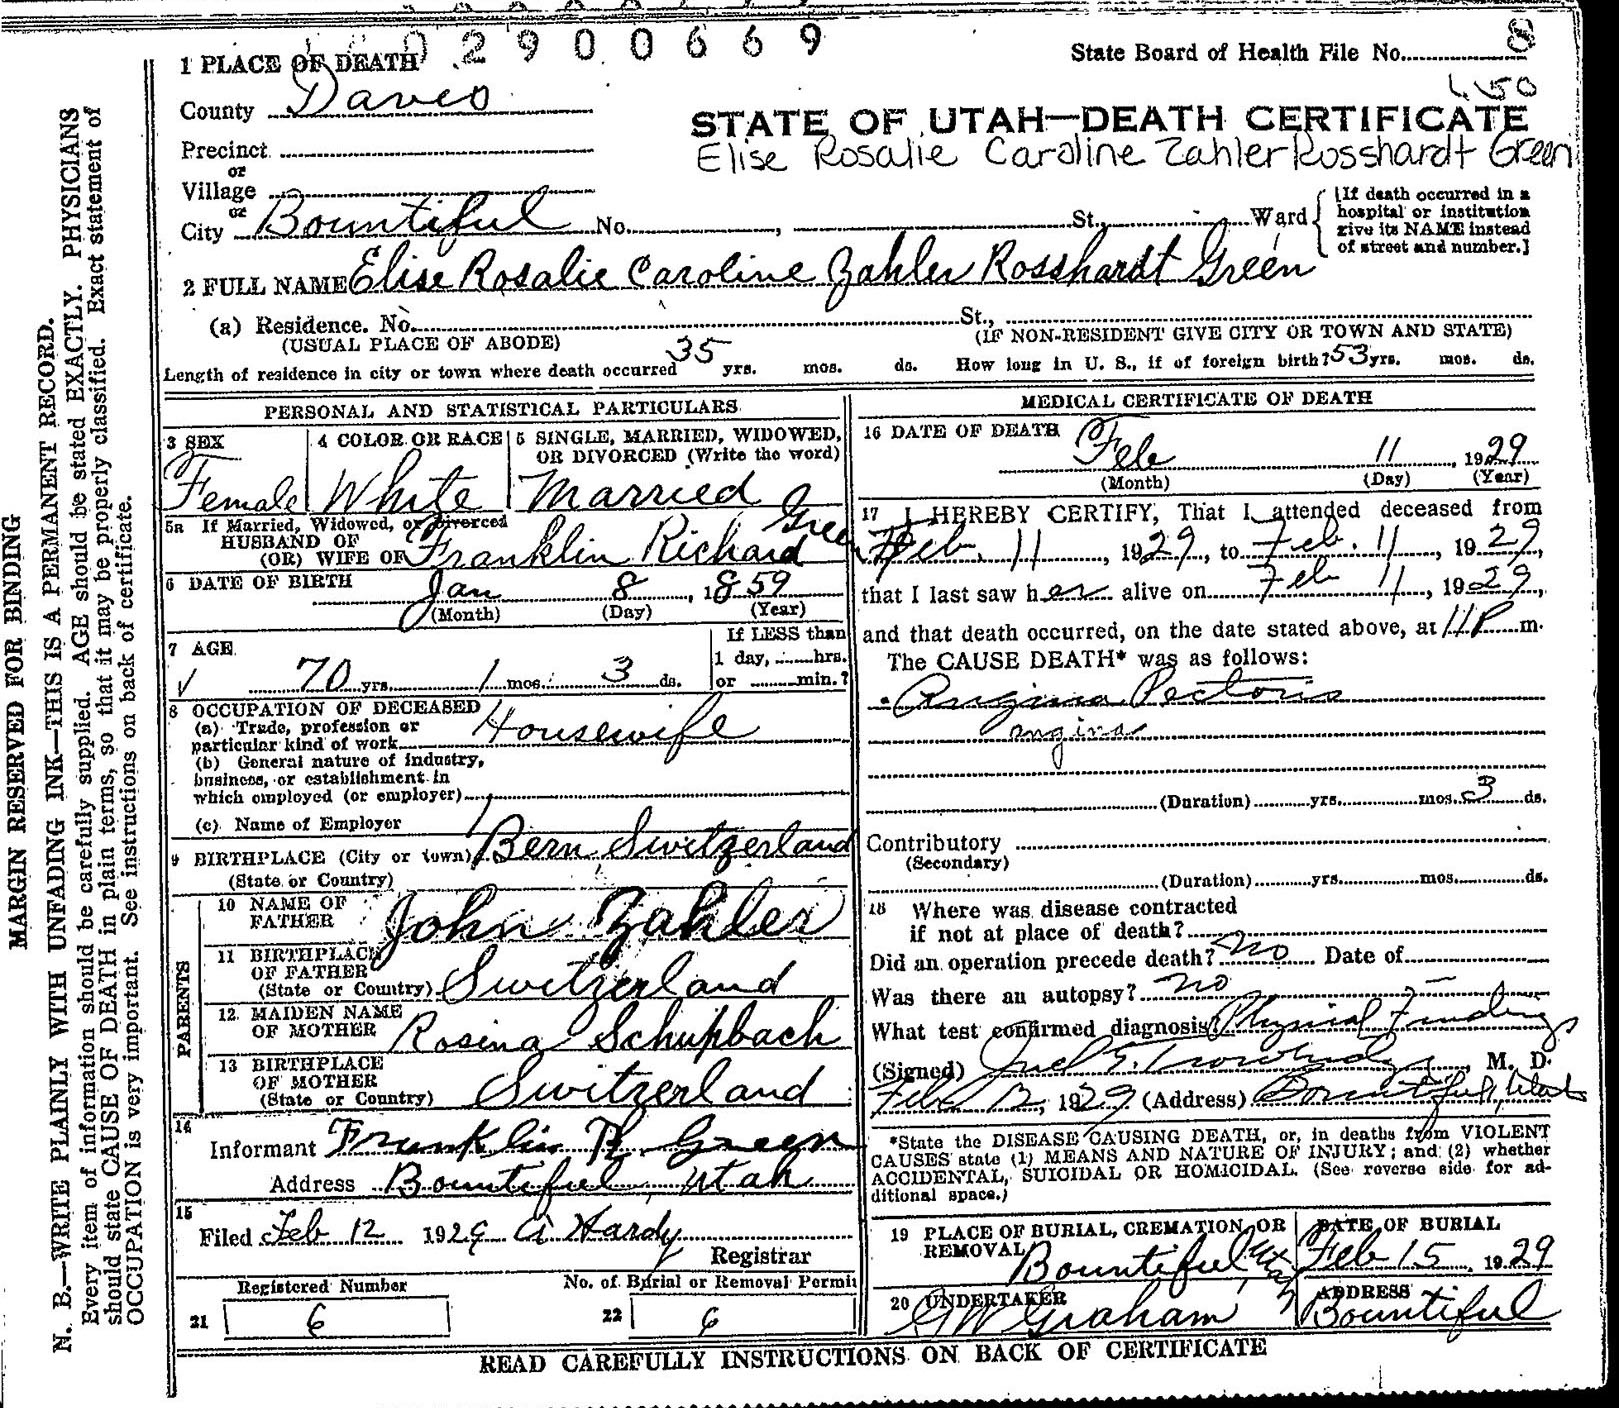 02900669
State Board of Health File No. 8
450
1 PLACE OF DEATH
County Daves
STATE OF UTAH—DEATH CERTIFICATE
Elise Rosalie Caroline Zahler Rosshardt Green
Precinct
or
Village
or
City Bountiful No. , St., Ward
[If death occurred in a
hospital or institution
give its NAME instead
of street and number.]
2 FULL NAME Elise Rosalie Caroline Zahler Rosshardt Green
(a) Residence. No. St.,
(USUAL PLACE OF ABODE) (IF NON-RESIDENT GIVE CITY OR TOWN AND STATE)
Length of residence in city or town where death occurred 35 yrs. mos. ds. How long in U. S., if of foreign birth? 53 yrs. mos. ds.
PERSONAL AND STATISTICAL PARTICULARS
3 SEX
Female
4 COLOR OR RACE
White
5 SINGLE, MARRIED, WIDOWED,
OR DIVORCED (Write the word)
Married
5a If Married, Widowed, or Divorced
HUSBAND OF
(OR) WIFE OF Franklin Richard Green
6 DATE OF BIRTH Jan 8, 1859
(Month) (Day) (Year)
7 AGE
70 yrs. 1 mos. 3 ds.
If LESS than
1 day, hrs.
or min.?
8 OCCUPATION OF DECEASED
(a) Trade, profession or
particular kind of work Housewife
(b) General nature of industry,
business, or establishment in
which employed (or employer)
(c) Name of Employer
9 BIRTHPLACE (City or town) Bern Switzerland
(State or Country)
PARENTS
10 NAME OF
FATHER John Zahler
11 BIRTHPLACE
OF FATHER
(State or Country) Switzerland
12 MAIDEN NAME
OF MOTHER Rosina Schupbach
13 BIRTHPLACE
OF MOTHER
(State or Country) Switzerland
14
Informant Franklin R. Green
Address Bountiful, Utah
15
Filed Feb 12 1929 A Hardy
Registrar
Registered Number No. of Burial or Removal Permit
21 6 22 6
MEDICAL CERTIFICATE OF DEATH
16 DATE OF DEATH Feb 11, 1929
(Month) (Day) (Year)
17 I HEREBY CERTIFY, That I attended deceased from
Feb. 11, 1929, to Feb. 11, 1929,
that I last saw her alive on Feb 11, 1929,
and that death occurred, on the date stated above, at 11 P m.
The CAUSE DEATH* was as follows:
Angina Pectoris
angina
(Duration) yrs. mos. 3 ds.
Contributory
(Secondary)
(Duration) yrs. mos. ds.
18 Where was disease contracted
if not at place of death?
Did an operation precede death? No Date of
Was there an autopsy? no
What test confirmed diagnosis? Physical Findings
(Signed) M. D.
Feb 12, 1929 (Address) Bountiful, Utah
*State the DISEASE CAUSING DEATH, or, in deaths from VIOLENT
CAUSES state (1) MEANS AND NATURE OF INJURY; and (2) whether
ACCIDENTAL, SUICIDAL OR HOMICIDAL. (See reverse side for ad-
ditional space.)
19 PLACE OF BURIAL, CREMATION, OR
REMOVAL Bountiful Utah
DATE OF BURIAL
Feb 15, 1929
20 UNDERTAKER
GW Graham
ADDRESS
Bountiful
READ CAREFULLY INSTRUCTIONS ON BACK OF CERTIFICATE
MARGIN RESERVED FOR BINDING
N. B.—WRITE PLAINLY WITH UNFADING INK—THIS IS A PERMANENT RECORD.
Every item of information should be carefully supplied. AGE should be stated EXACTLY. PHYSICIANS
should state CAUSE OF DEATH in plain terms, so that it may be properly classified. Exact statement of
OCCUPATION is very important. See instructions on back of certificate.